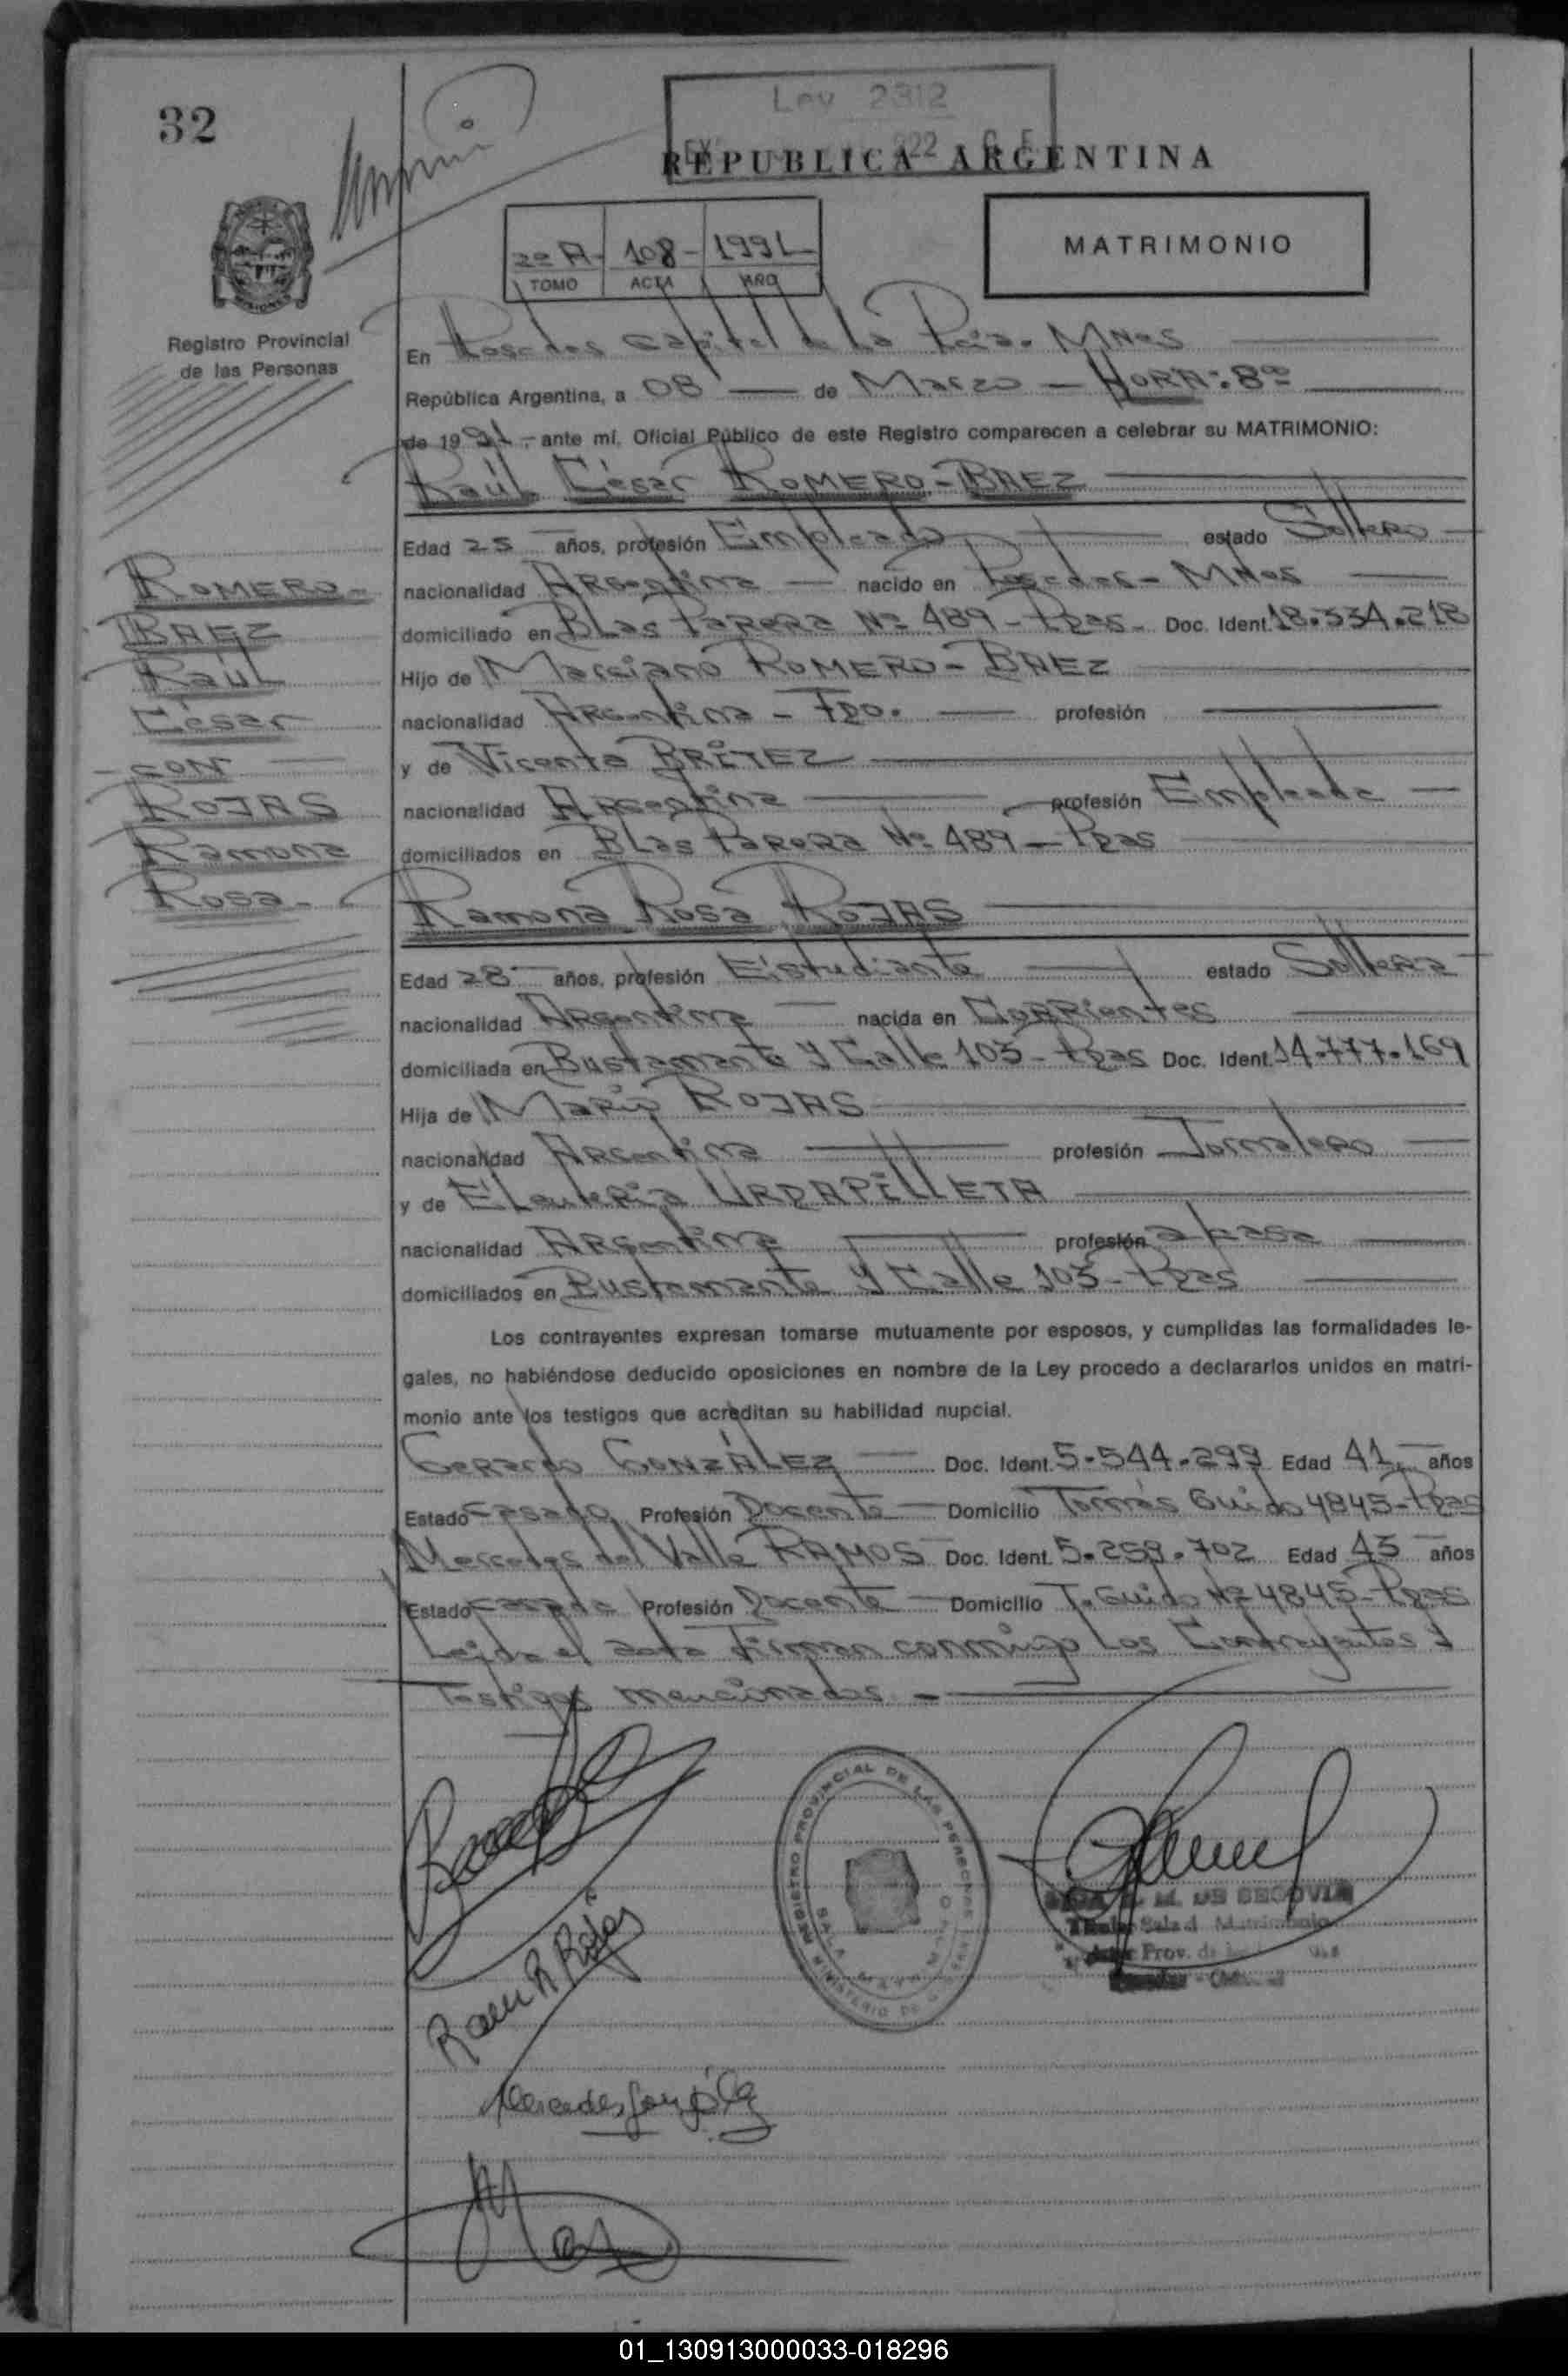 32
Ley 2312
REPUBLICA ARGENTINA
2º A- 108- 1991-
TOMO ACTA AÑO
MATRIMONIO
Registro Provincial
de las Personas
En Posadas Capital de La Pcia. MNes
República Argentina, a 08 — de Marzo — HORA: 8ºº
de 1991.- ante mí, Oficial Público de este Registro comparecen a celebrar su MATRIMONIO:
Raúl César ROMERO-BAEZ
Edad 25 años, profesión Empleado estado Soltero
nacionalidad Argentina — nacido en Posadas- MNes
domiciliado en Blas Parera Nº 489 - Ppas- Doc. Ident. 18.334.218
Hijo de Marciano ROMERO-BAEZ
nacionalidad Argentina - Fdo. — profesión
y de Vicenta BRITEZ
nacionalidad Argentina — profesión Empleada —
domiciliados en Blas Parera Nº 489 - Ppas
ROMERO-
BAEZ
Raúl
César
- CON -
ROJAS
Ramona
Rosa-
Ramona Rosa ROJAS
Edad 28 años, profesión Estudiante estado Soltera
nacionalidad Argentina nacida en Corrientes
domiciliada en Bustamante y Calle 103- Ppas Doc. Ident. 14.777.169
Hija de Mario ROJAS
nacionalidad Argentina profesión Jornalero
y de Eleuteria URDAPILLETA
nacionalidad Argentina profesión a/casa
domiciliados en Bustamante y Calle 103- Ppas
Los contrayentes expresan tomarse mutuamente por esposos, y cumplidas las formalidades le-
gales, no habiéndose deducido oposiciones en nombre de la Ley procedo a declararlos unidos en matri-
monio ante los testigos que acreditan su habilidad nupcial.
Gerardo GONZÁLEZ — Doc. Ident. 5.544.299 Edad 41 años
Estado casado Profesión Docente — Domicilio Tomás Guido 4845-Ppas
Mercedes del Valle RAMOS Doc. Ident. 5.259.702 Edad 43 años
Estado casada Profesión Docente — Domicilio T. Guido Nº 4845-Ppas
Leída el acta firman conmigo los Contrayentes y
Testigos mencionados. -
REGISTRO PROVINCIAL DE LAS PERSONAS
MINISTERIO DE
M. DE SEGOVIA
Sala d Matrimonio
Prov. de
Ram R Rojas
01_130913000033-018296